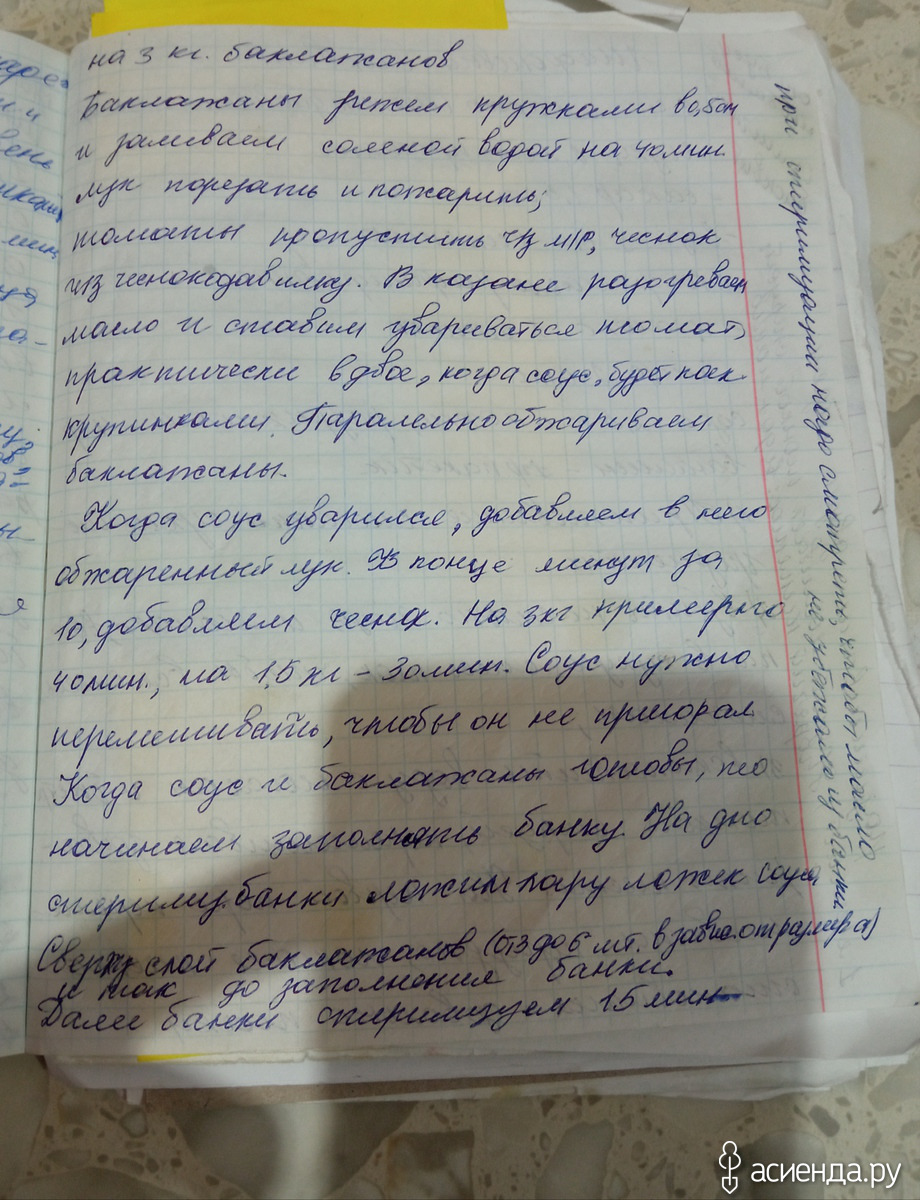 на 3 кг. баклажанов
Баклажаны режем кружками
и заливаем соленой водой на 40 мин.
лук порезать и пожарить;
томаты пропустить ч/з м/р, чеснок
ч/з чеснокодавилку. В казане разогреваем
масло и ставим увариваться томат,
практически вдвое, когда соус, будет как
крупинками. Паралельно обжариваем
баклажаны.
Когда соус уварился, добавляем в него
обжаренный лук. В конце минут за
10, добавляем чеснок. На 3 кг примерно
40 мин., на 1,5 кг - 30 мин. Соус нужно
перемешивать, чтобы он не пригорал
Когда соус и баклажаны готовы, то
начинаем заполнять банку. На дно
стерилиз. банки ложим пару ложек соуса
Сверху слой баклажанов (от 3 до 6 шт. в завис. от размера)
и так до заполнения банки.
Далее банки стерилизуем 15 мин
при стерилизации надо смотреть, чтобы масло
не убежало из банки
асиенда.ру